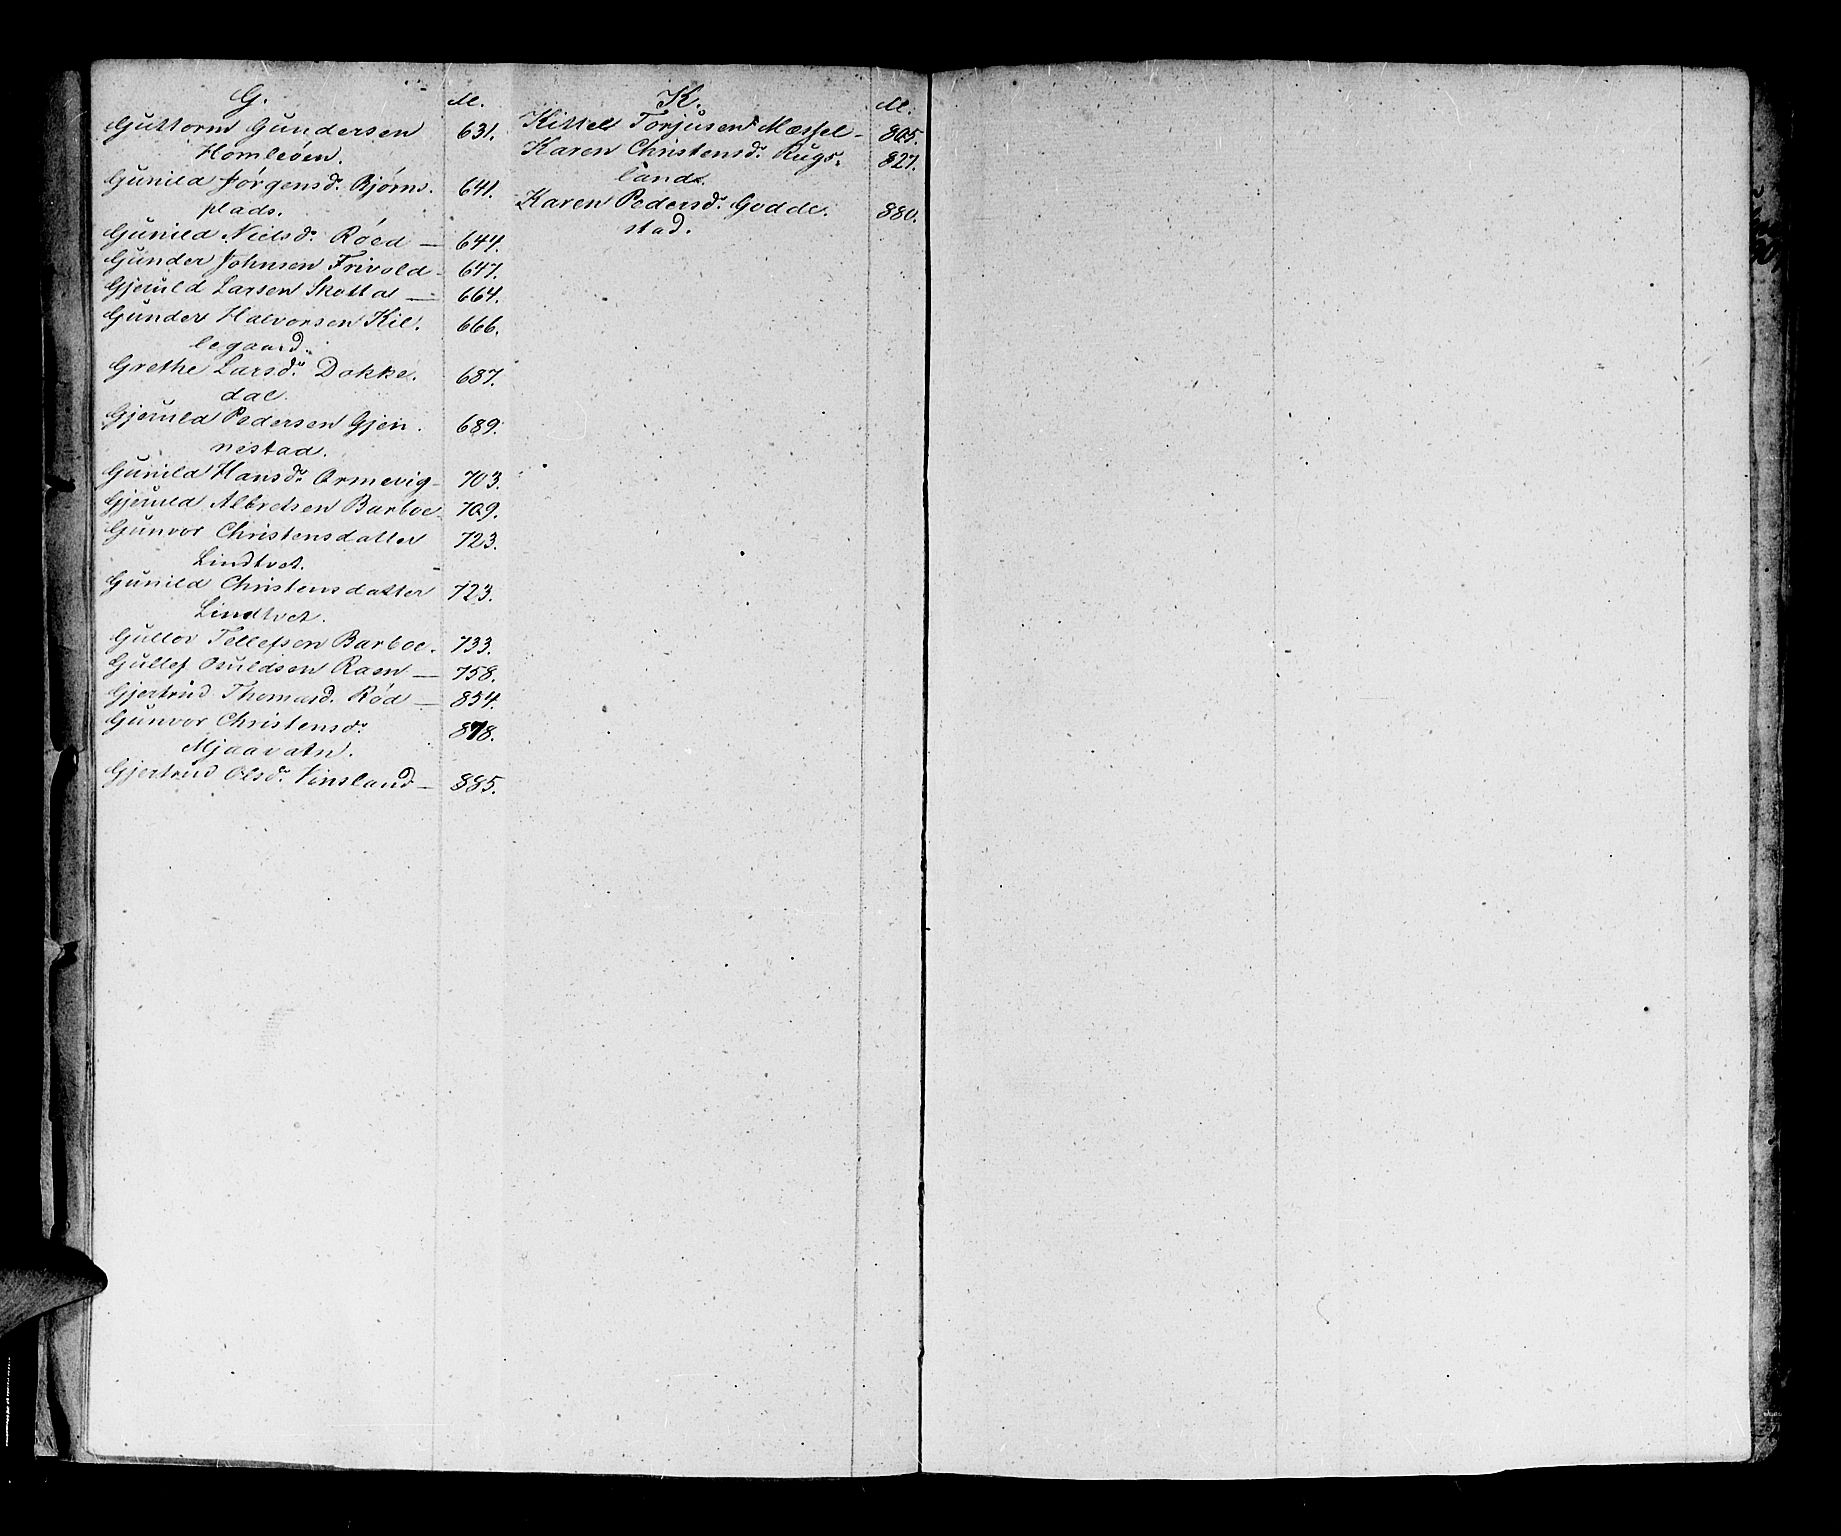 G.
Guttorm Gundersen 631.
Homleöen.
Gunild Jörgensd. Bjørns- 641.
plads.
Gunild Nielsd. Røed — 644.
Gunder Johnsen Frivold - 647.
Gjeruld Larsen Skottal — 664.
Gunder Halvorsen Kil- 666.
legaard.
Grethe Larsd. Dokke- 687.
dal.
Gjeruld Pedersen Gjen- 689.
nestad.
Gunild Hansd. Ormevig - 703.
Gjeruld Albretsen Barboe 709.
Gunvor Christensdatter 723.
Lindtvet.
Gunild Christensdatter 723.
Lindtvet.
Gullov Tellefsen Barboe. 733.
Gullef Osuldsen Raen — 758.
Gjertrud Thomasd. Rød — 854.
Gunvor Christensd. 878.
Mjaavatn.
Gjertrud Olsd. Vinsland — 885.
K.
Kittel Torjusen Mæssel - 805.
Karen Christensd. Rugs- 827.
land.
Karen Pedersd. Godde- 880.
stad.